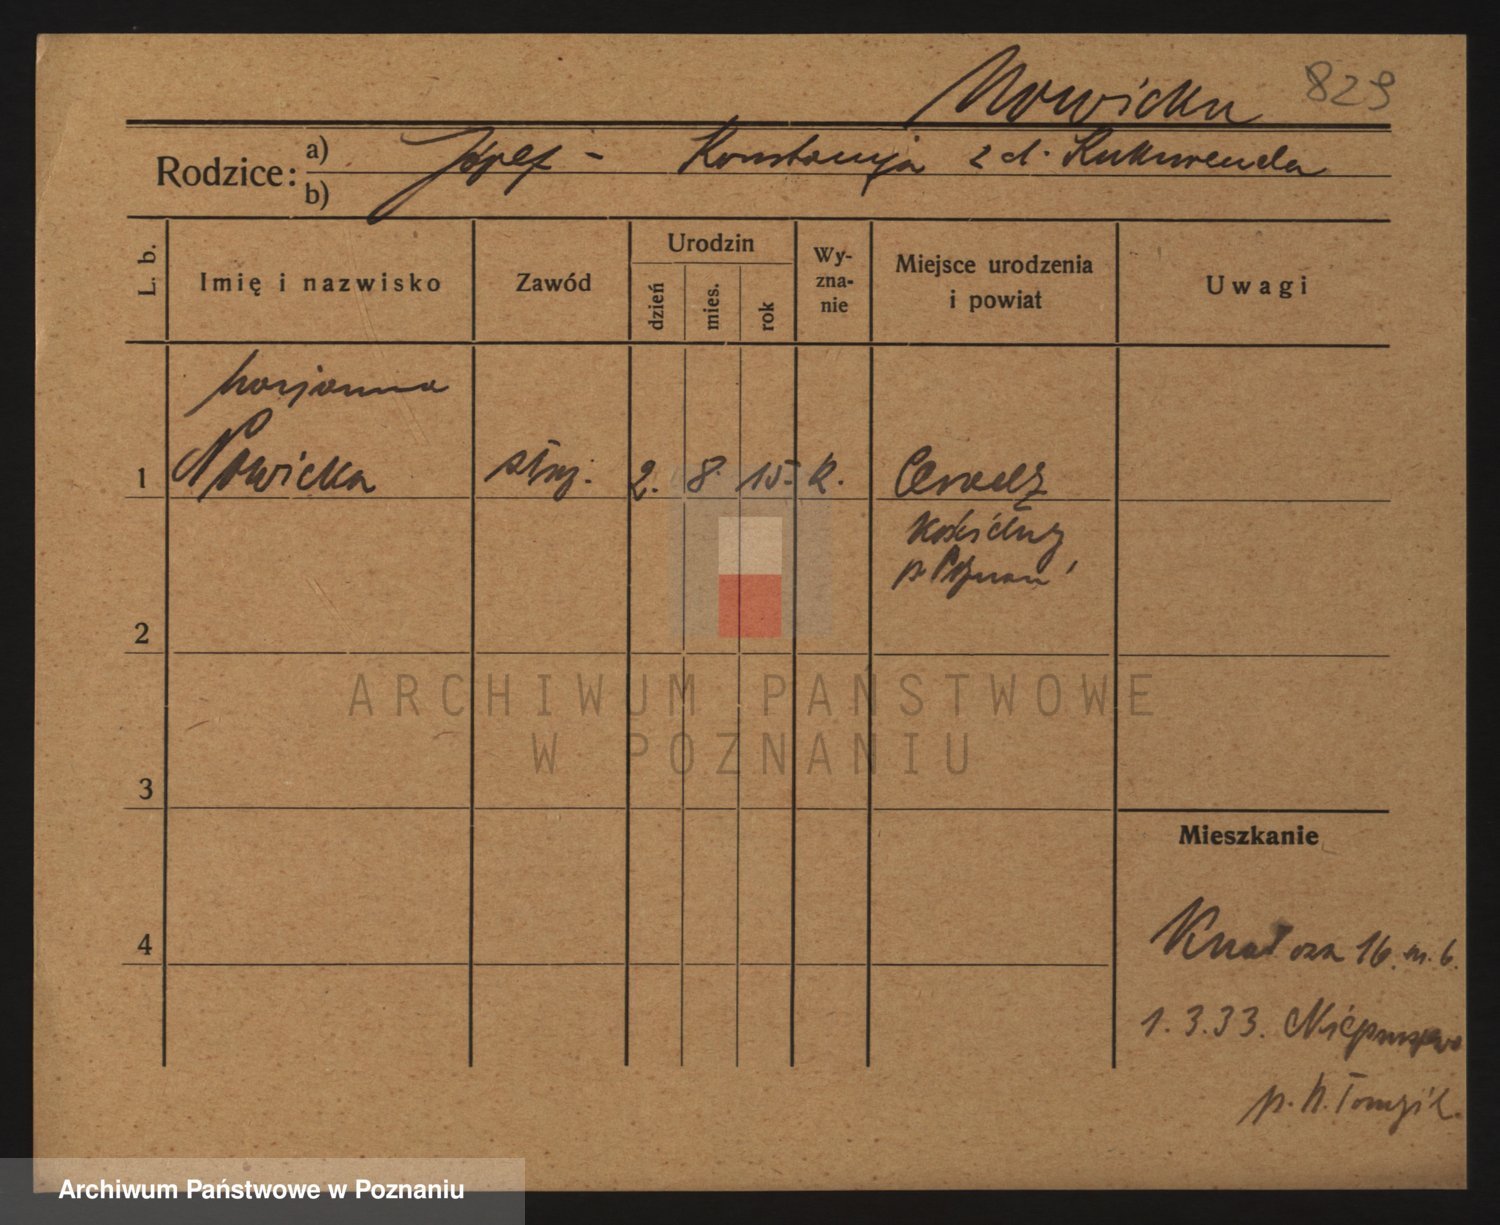 Nowicka 829
Rodzice: a) b) Józef - Konstancja z d. Kukurenda
L. b. Imię i nazwisko Zawód Urodzin dzień mies. rok Wy-zna-nie Miejsce urodzenia i powiat Uwagi
Marjanna
1 Nowicka służ. 2. 8. 15. k.
kościelny
p. Poznań
2
3
Mieszkanie
4
16 m. 6.
1.3.33.
p. N. Tomyśl.
ARCHIWUM PAŃSTWOWE
W POZNANIU
Archiwum Państwowe w Poznaniu